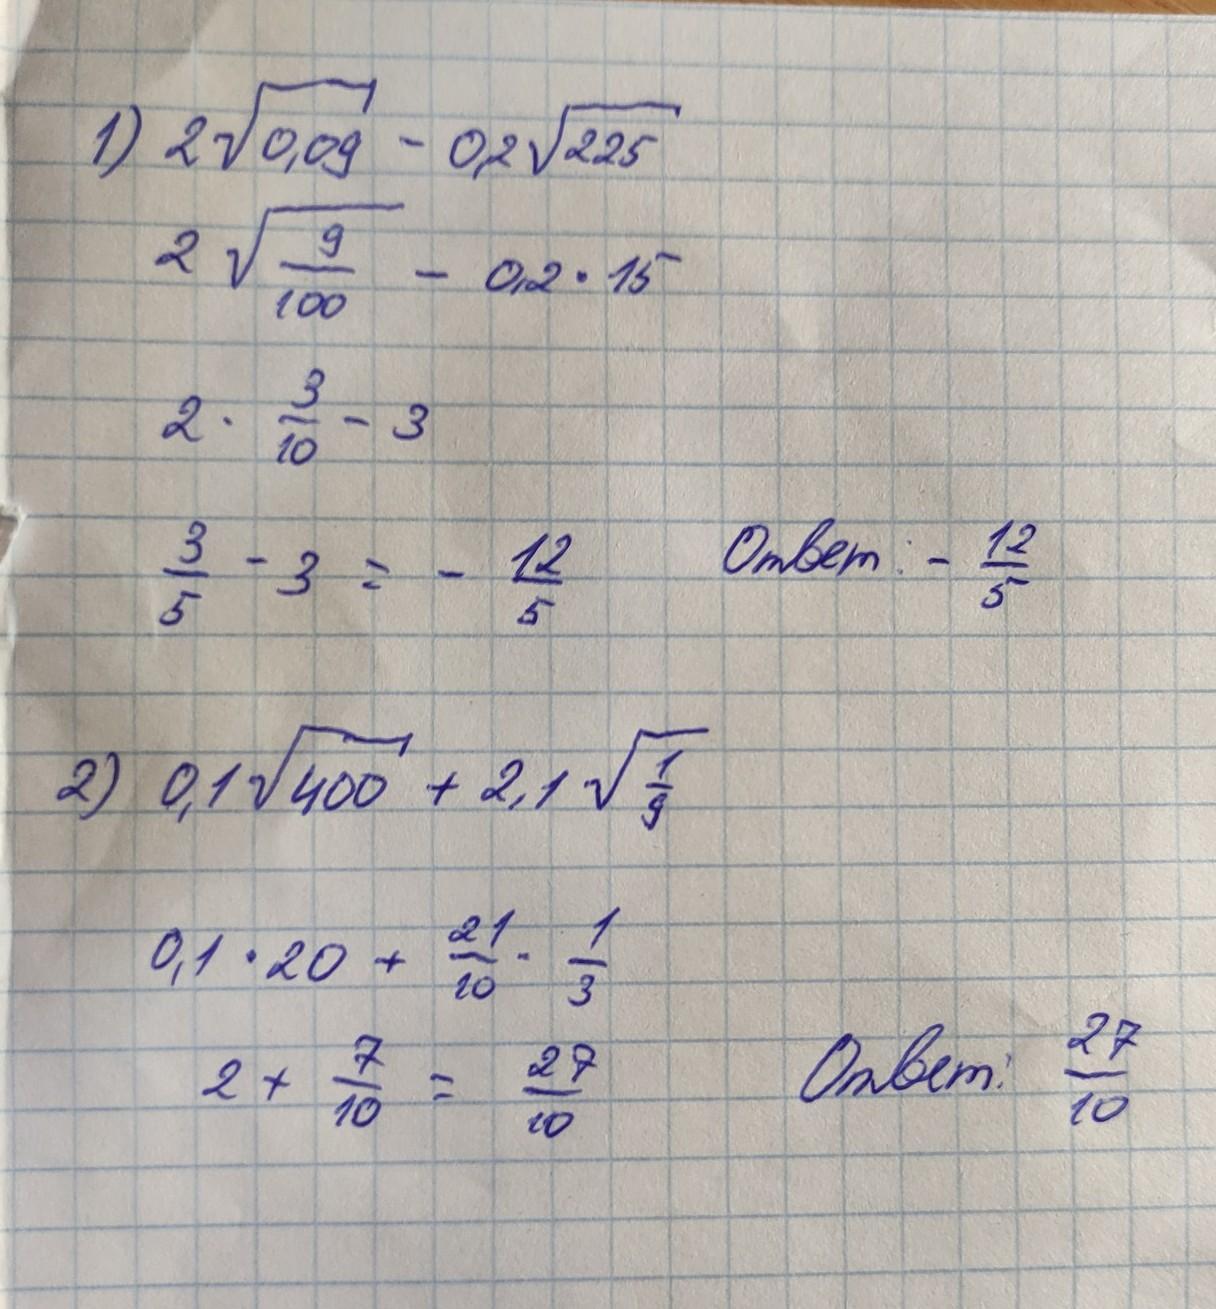 1) 2√0,09 - 0,2√225
2 √(9/100) - 0,2 · 15
2 · 3/10 - 3
3/5 - 3 = - 12/5 Ответ: - 12/5
2) 0,1√400 + 2,1 √(1/9)
0,1 · 20 + 21/10 · 1/3
2 + 7/10 = 27/10 Ответ: 27/10